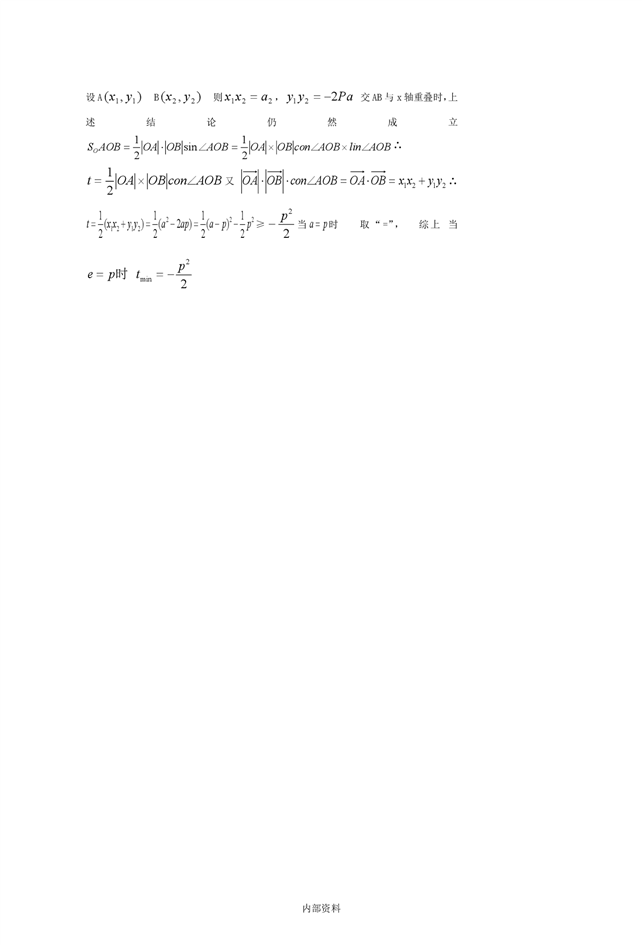 设 A(x₁, y₁) B(x₂, y₂) 则 x₁x₂ = a₂， y₁y₂ = −2Pa 交 AB 与 x 轴重叠时，上
述 结 论 仍 然 成 立
S_O AOB = 1/2|OA|·|OB|sin∠AOB = 1/2|OA|×|OB|con∠AOB×lin∠AOB ∴
t = 1/2|OA|×|OB|con∠AOB 又 |OA→|·|OB→|·con∠AOB = OA→·OB→ = x₁x₂ + y₁y₂ ∴
t = 1/2(x₁x₂ + y₁y₂) = 1/2(a² − 2ap) = 1/2(a − p)² − 1/2p² ≥ −p²/2 当 a = p 时 取“=”， 综上 当
e = p时 t_min = −p²/2
内部资料